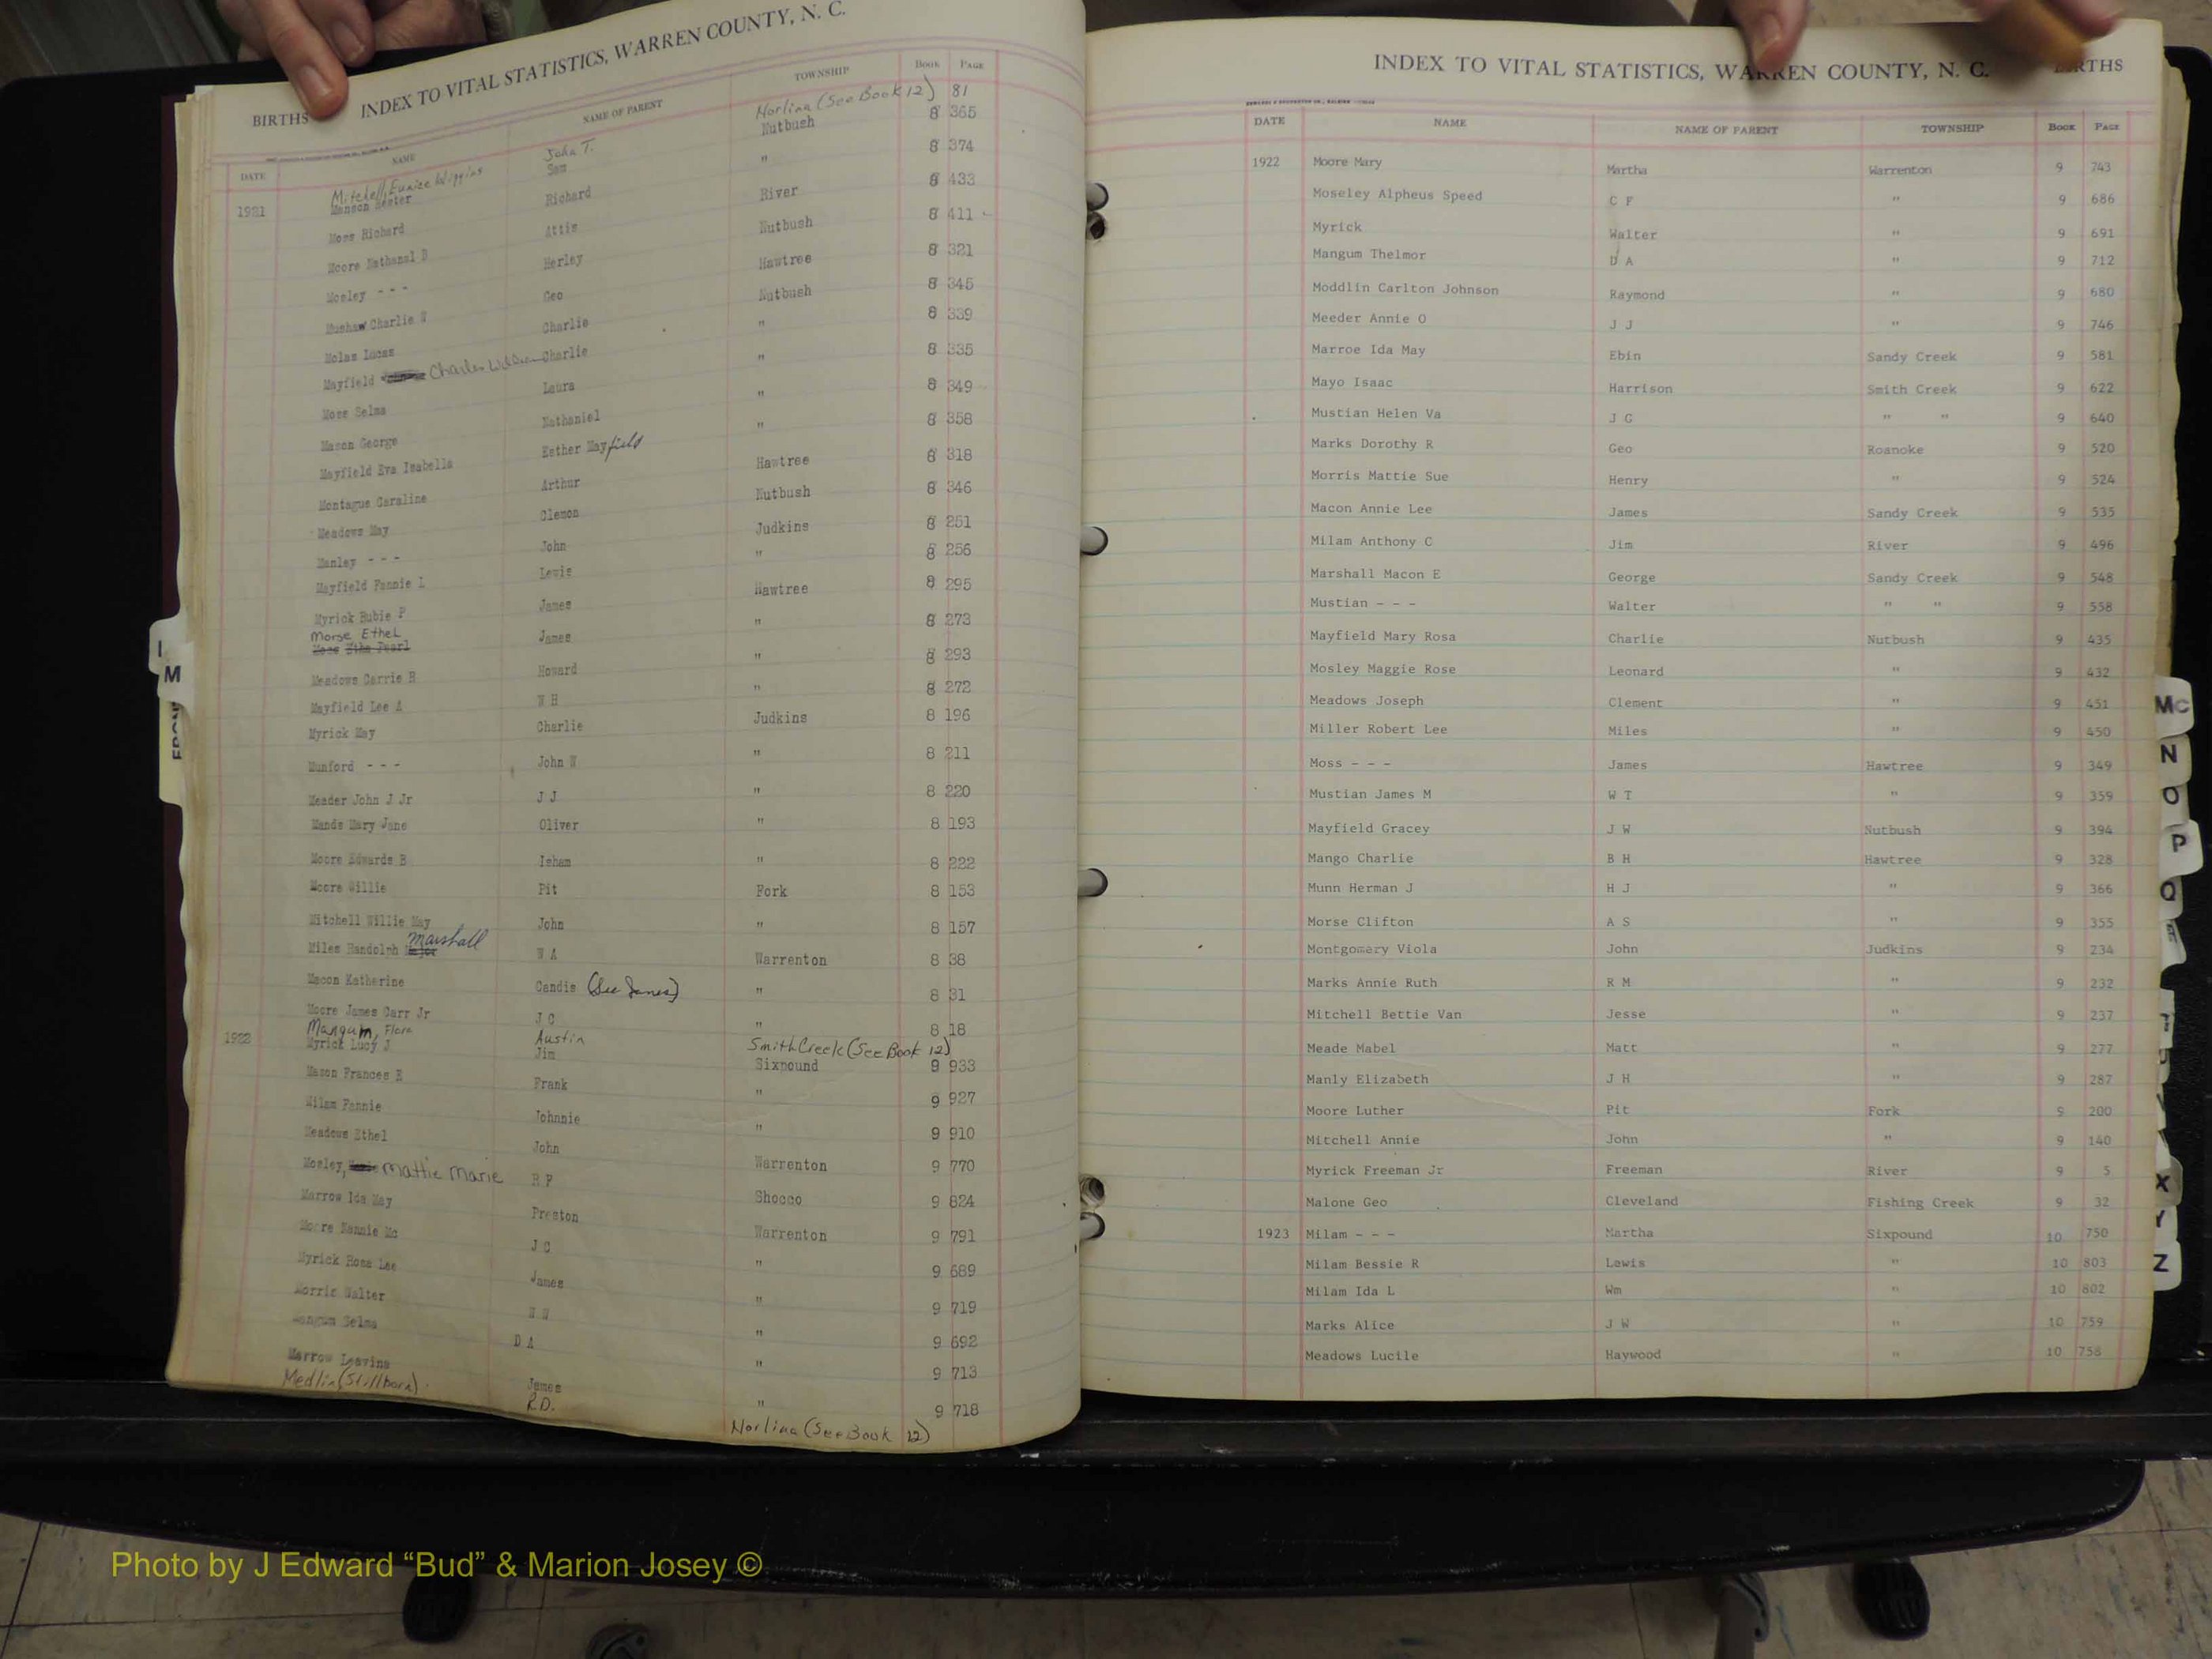 BIRTHS INDEX TO VITAL STATISTICS, WARREN COUNTY, N. C.
DATE NAME NAME OF PARENT TOWNSHIP BOOK PAGE
Mitchell, Eunice Wiggins John T. Norlina (See Book 12) 81
1921 Manson Sam Nutbush 8 365
Moss Richard Richard " 8 374
Moore Nathanal B Attis River 8 433
Mosley - - - Herley Nutbush 8 411
Mushaw Charlie W Geo Hawtree 8 321
Molas Lucas Charlie Nutbush 8 345
Mayfield Charlie " 8 339
Moss Selma Laura " 8 335
Mason George Nathaniel " 8 349
Mayfield Eva Isabella Esther Mayfield " 8 358
Montague Caraline Arthur Hawtree 8 318
Meadows May Clemon Nutbush 8 346
Manley - - - John Judkins 8 251
Mayfield Fannie L Lewis " 8 256
Myrick Rubie P James Hawtree 8 295
Morse Ethel James " 8 273
Meadows Carrie B Howard " 8 293
Mayfield Lee A W H " 8 272
Myrick May Charlie Judkins 8 196
Munford - - - John W " 8 211
Meader John J Jr J J " 8 220
Mands Mary Jane Oliver " 8 193
Moore Edwards B Isham " 8 222
Moore Willie Pit Fork 8 153
Mitchell Willie May John " 8 157
Miles Randolph Marshall W A Warrenton 8 38
Macon Katherine Candis (See James) " 8 31
Moore James Carr Jr J C " 8 18
Mangum, Flora Austin Smith Creek (See Book 12)
1922 Myrick Lucy J Jim Sixpound 9 933
Mason Frances R Frank " 9 927
Milam Fannie Johnnie " 9 910
Meadows Ethel John Warrenton 9 770
Mosley, Mattie Marie R F Shocco 9 824
Marrow Ida May Preston Warrenton 9 791
Moore Nannie Mc J C " 9 689
Myrick Rosa Lee James " 9 719
Morris Walter W W " 9 692
Mangum Selma D A " 9 713
Marrow Leavins James " 9 718
Medlin (Stillborn) R.D. Norlina (See Book 12)
I
M
INDEX TO VITAL STATISTICS, WARREN COUNTY, N. C. BIRTHS
DATE NAME NAME OF PARENT TOWNSHIP BOOK PAGE
1922 Moore Mary Martha Warrenton 9 743
Moseley Alpheus Speed C F " 9 686
Myrick Walter " 9 691
Mangum Thelmor D A " 9 712
Moddlin Carlton Johnson Raymond " 9 680
Meeder Annie O J J " 9 746
Marroe Ida May Ebin Sandy Creek 9 581
Mayo Isaac Harrison Smith Creek 9 622
Mustian Helen Va J G " " 9 640
Marks Dorothy R Geo Roanoke 9 520
Morris Mattie Sue Henry " 9 524
Macon Annie Lee James Sandy Creek 9 535
Milam Anthony C Jim River 9 496
Marshall Macon E George Sandy Creek 9 548
Mustian - - - Walter " " 9 558
Mayfield Mary Rosa Charlie Nutbush 9 435
Mosley Maggie Rose Leonard " 9 432
Meadows Joseph Clement " 9 451
Miller Robert Lee Miles " 9 450
Moss - - - James Hawtree 9 349
Mustian James M W T " 9 359
Mayfield Gracey J W Nutbush 9 394
Mango Charlie B H Hawtree 9 328
Munn Herman J H J " 9 366
Morse Clifton A S " 9 355
Montgomery Viola John Judkins 9 234
Marks Annie Ruth R M " 9 232
Mitchell Bettie Van Jesse " 9 237
Meade Mabel Matt " 9 277
Manly Elizabeth J H " 9 287
Moore Luther Pit Fork 9 200
Mitchell Annie John " 9 140
Myrick Freeman Jr Freeman River 9 5
Malone Geo Cleveland Fishing Creek 9 32
1923 Milam - - - Martha Sixpound 10 750
Milam Bessie R Lewis " 10 803
Milam Ida L Wm " 10 802
Marks Alice J W " 10 759
Meadows Lucile Haywood " 10 758
Mc
N
O
P
Q
X
Y
Z
Photo by J Edward “Bud” & Marion Josey ©